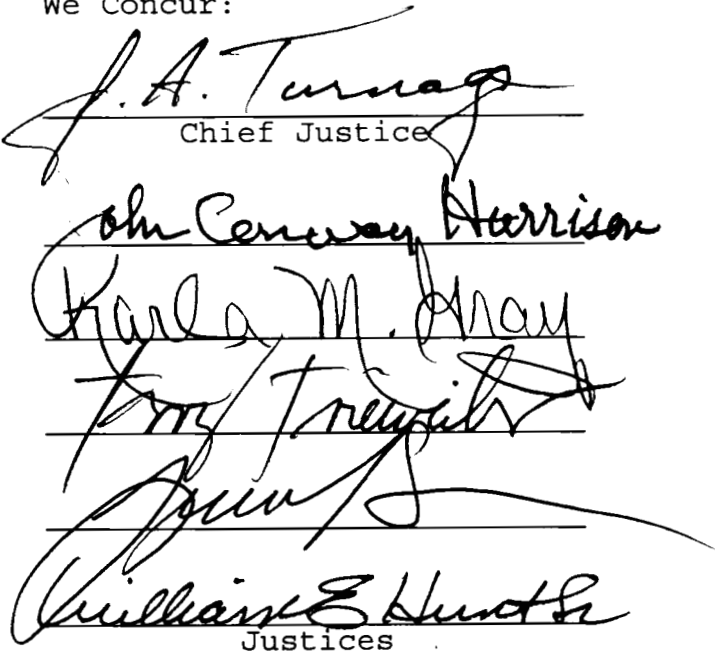 We Concur:
J. A. Turnage
Chief Justice
John Conway Harrison
Karla M. Gray
Terry Trieweiler
William E Hunt Sr
Justices